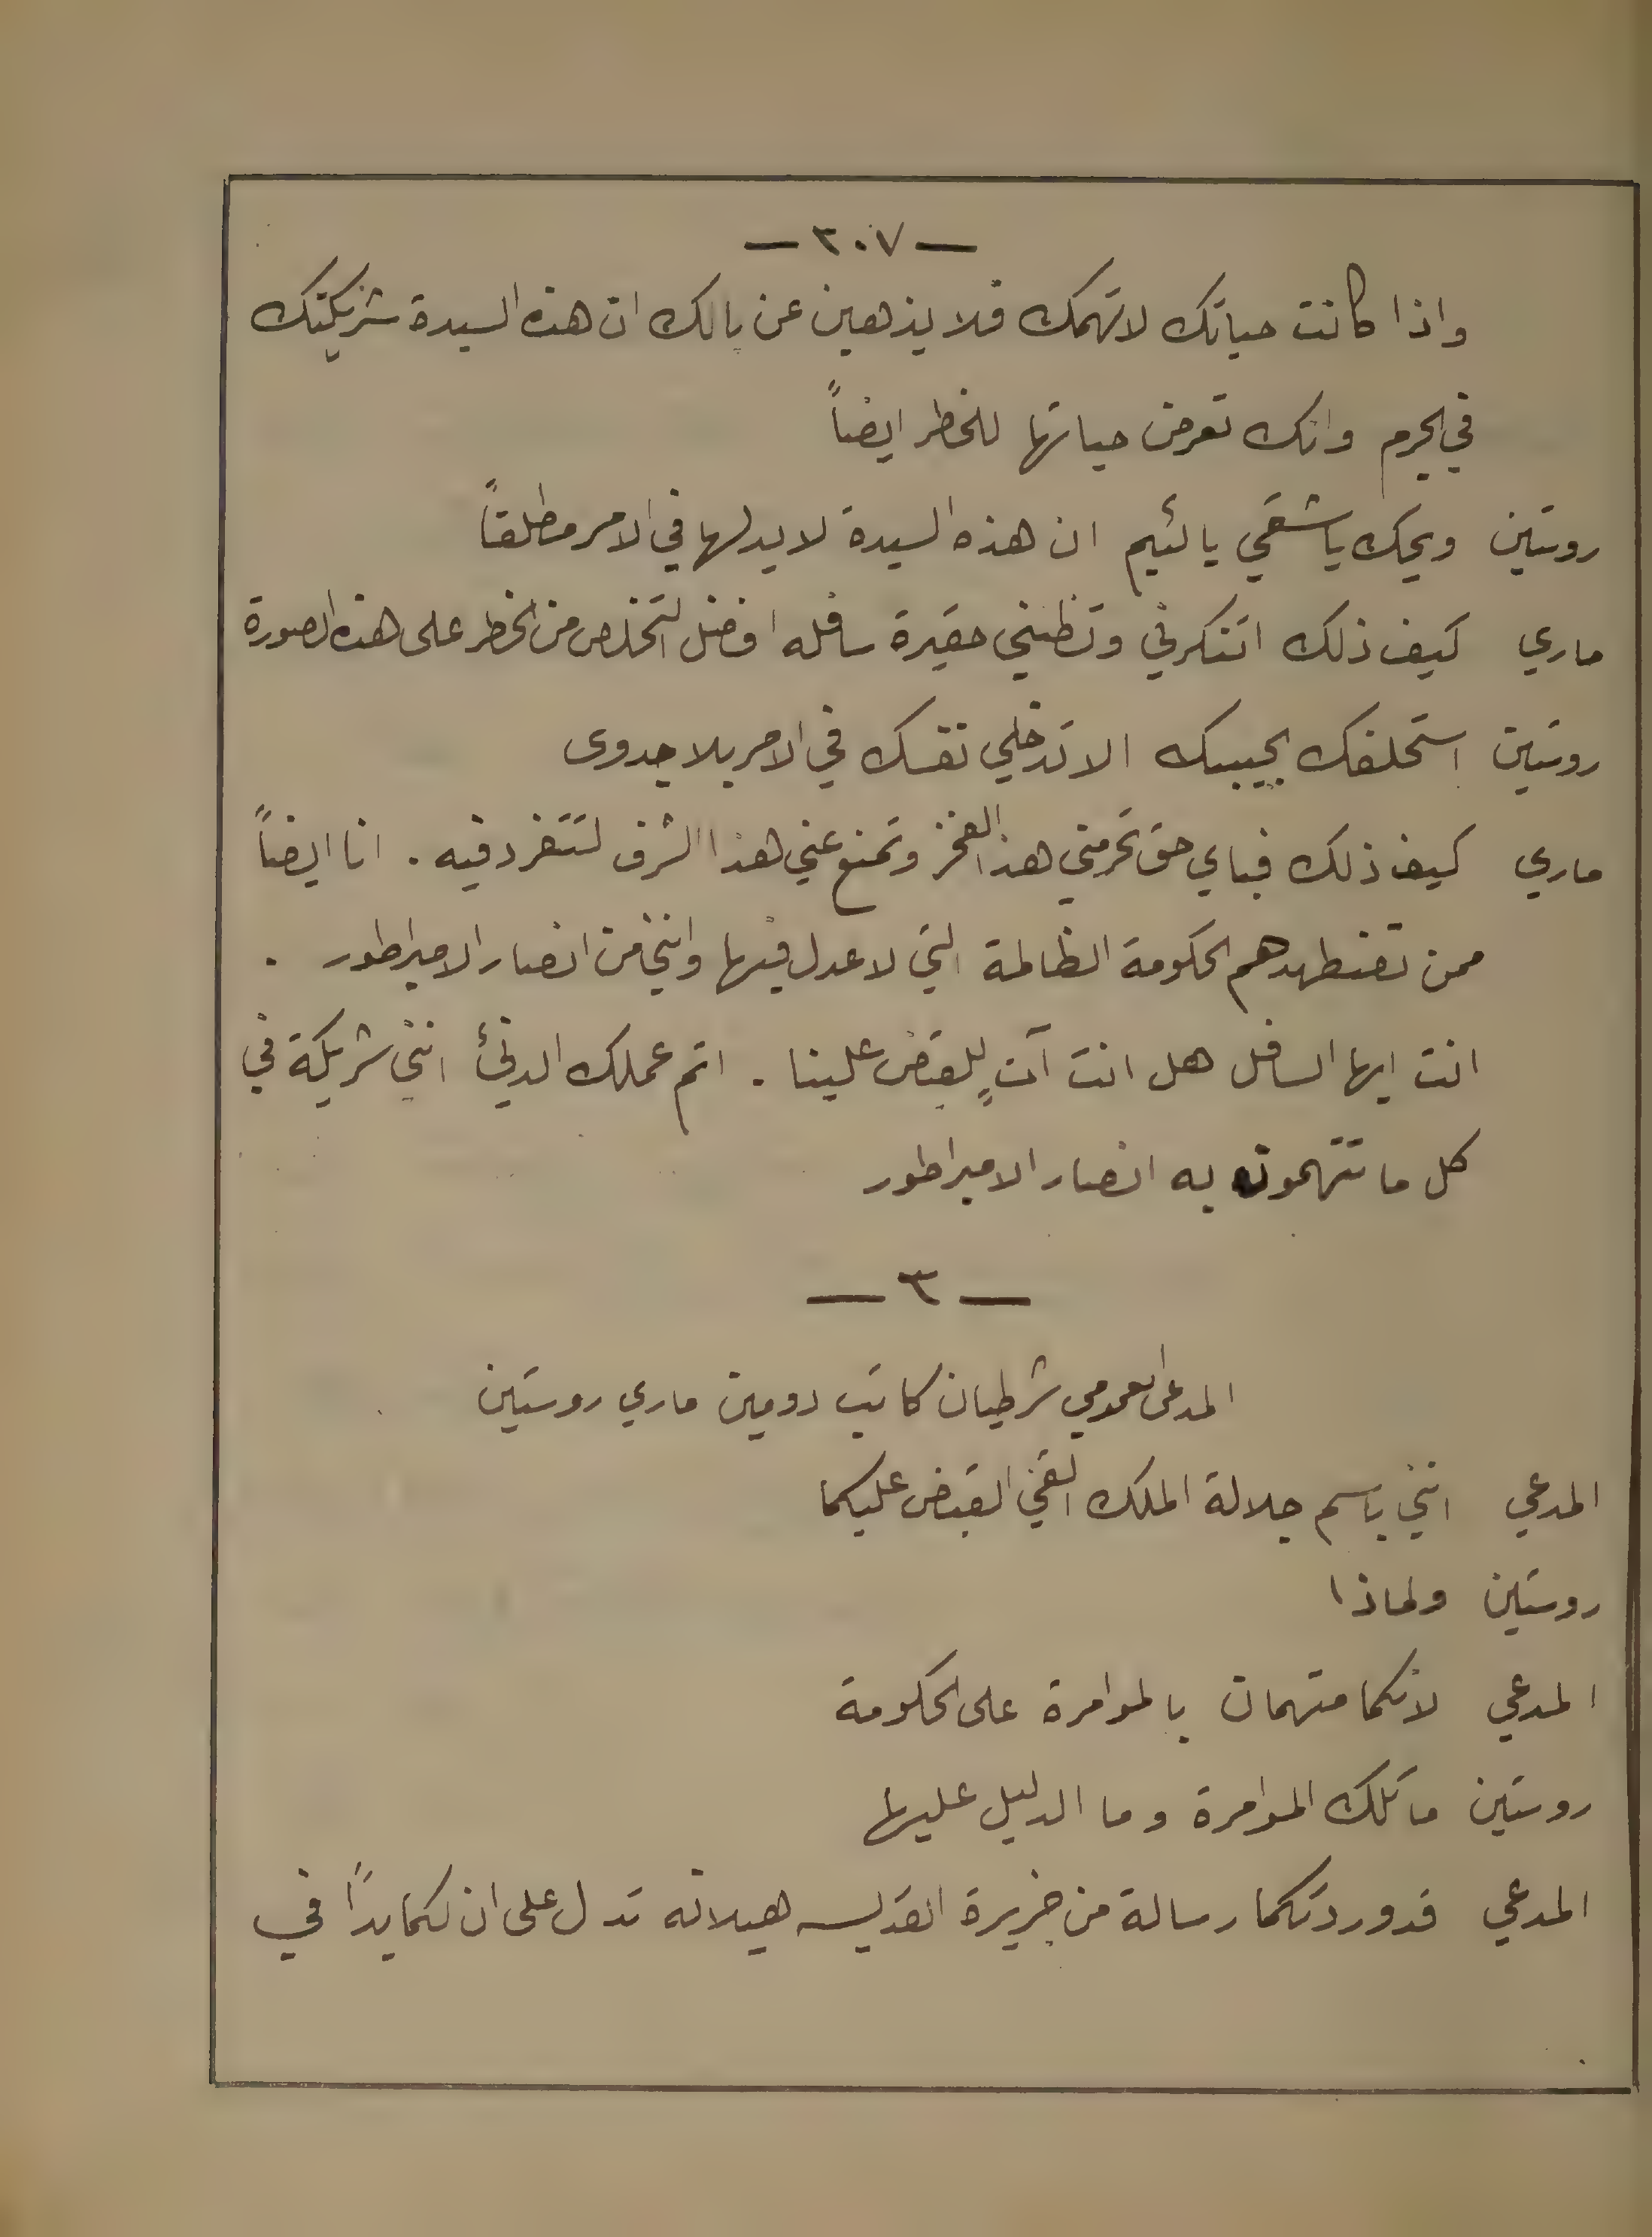 — ٣٠٧ —
واذا كانت حياتك لاتهمك فلا يذهبن عن بالك ان هذه السيدة شريكتك
في الجرم وانك تعرض حياتها للخطر ايضاً
روستين ويحك يا شقي يا لئيم ان هذه السيدة لا يد لها في الامر مطلقاً
ماري كيف ذلك اتنكرني وتظنني حقيرة سافله افضل التخلص من الخطر على هذه الصورة
روستين استحلفك بحبيبك الا تدخلي نفسك في الامر بلا جدوى
ماري كيف ذلك فباي حق تحرمني هذا الفخر وتمنع عني هذا الشرف لتتفرد فيه . انا ايضاً
ممن تضطهدهم الحكومة الظالمة التي لا عدل فيها وانني من انصار الامبراطور .
انت ايها السافل هل انت آتٍ للقبض علينا . اتم عملك الدنئ انني شريكة في
كل ما تتهمون به انصار الامبراطور
— ٣ —
المدعي العمومي شرطيان كاتب دومين ماري روستين
المدعي انني باسم جلالة الملك القي القبض عليكما
روستين ولماذا
المدعي لانكما متهمان بالموامرة على الحكومة
روستين ما تلك الموامرة وما الدليل عليها
المدعي قد وردتكما رسالة من جزيرة القديسه هيلانه تدل على ان لكما يدًا في